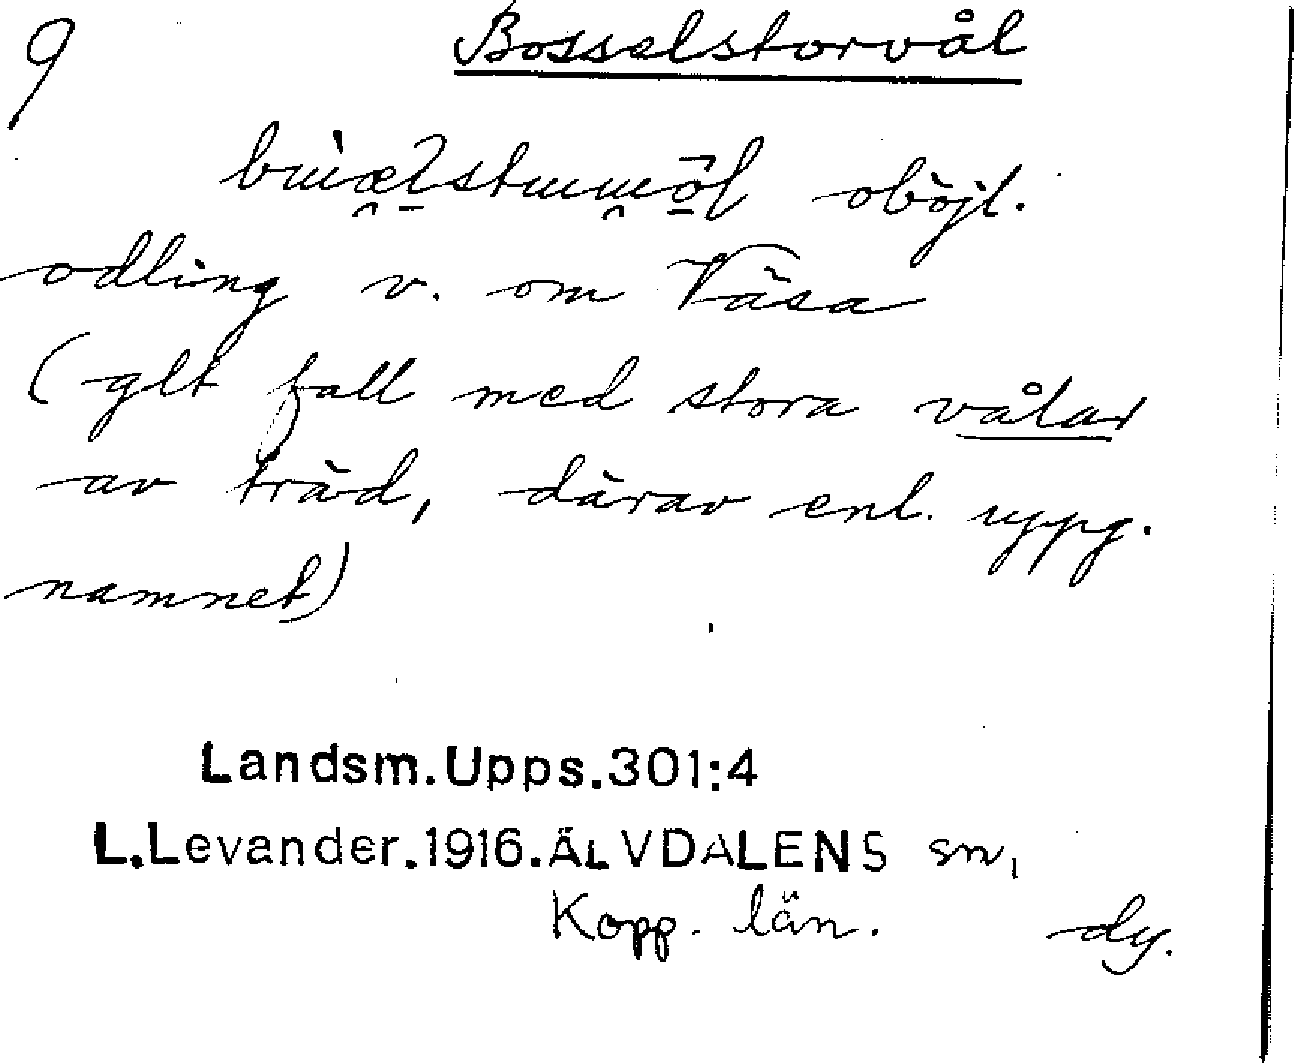 9 Bosselstorvål
oböjl.
odling v. om Väsa
(glt fall med stora vålar
av träd, därav enl. uppg.
namnet)
Landsm.Upps.301:4
L.Levander.1916.ÄLVDALENS sn,
Kopp. län. dy.